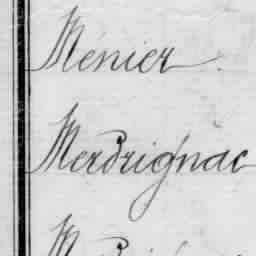 Ménier
Merdrignac